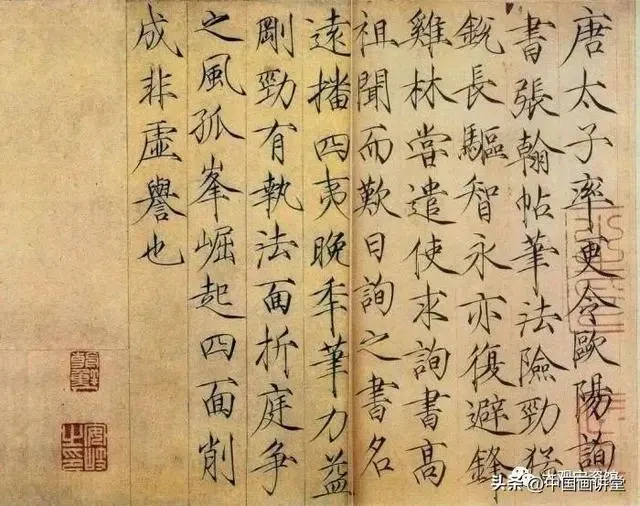 唐太子率更令歐陽詢
書張翰帖筆法險勁猛
銳長驅智永亦復避鋒
雞林嘗遣使求詢書高
祖聞而歎曰詢之書名
遠播四夷晚秊筆力益
剛勁有執法面折庭爭
之風孤峯崛起四面削
成非虛譽也
安岐之印
头条 @中国画讲堂